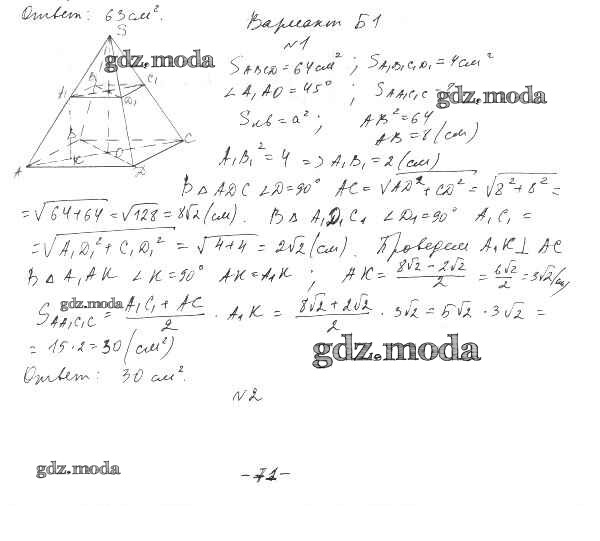 Ответ: 63 см².
Вариант Б1
№1
S
gdz.moda
S ABCD = 64 см² ; S A₁B₁C₁D₁ = 4 см²
∠A₁AO = 45° ; S AA₁C₁C - ?
gdz.moda
Sкв = a² ; AB² = 64
AB = 8 (см)
A₁B₁² = 4 => A₁B₁ = 2 (см)
В △ ADC ∠D = 90° AC = √AD² + CD² = √8² + 8² =
= √64+64 = √128 = 8√2 (см). В △ A₁D₁C₁ ∠D₁ = 90° A₁C₁ =
= √A₁D₁² + C₁D₁² = √4+4 = 2√2 (см). Проведем A₁K ⊥ AC
В △ A₁AK ∠K = 90° AK = A₁K ; AK = (8√2 - 2√2)/2 = 6√2/2 = 3√2 (см)
gdz.moda
S AA₁C₁C = (A₁C₁ + AC)/2 · A₁K = (8√2 + 2√2)/2 · 3√2 = 5√2 · 3√2 =
= 15·2 = 30 (см²)
gdz.moda
Ответ: 30 см².
№2
gdz.moda
-71-